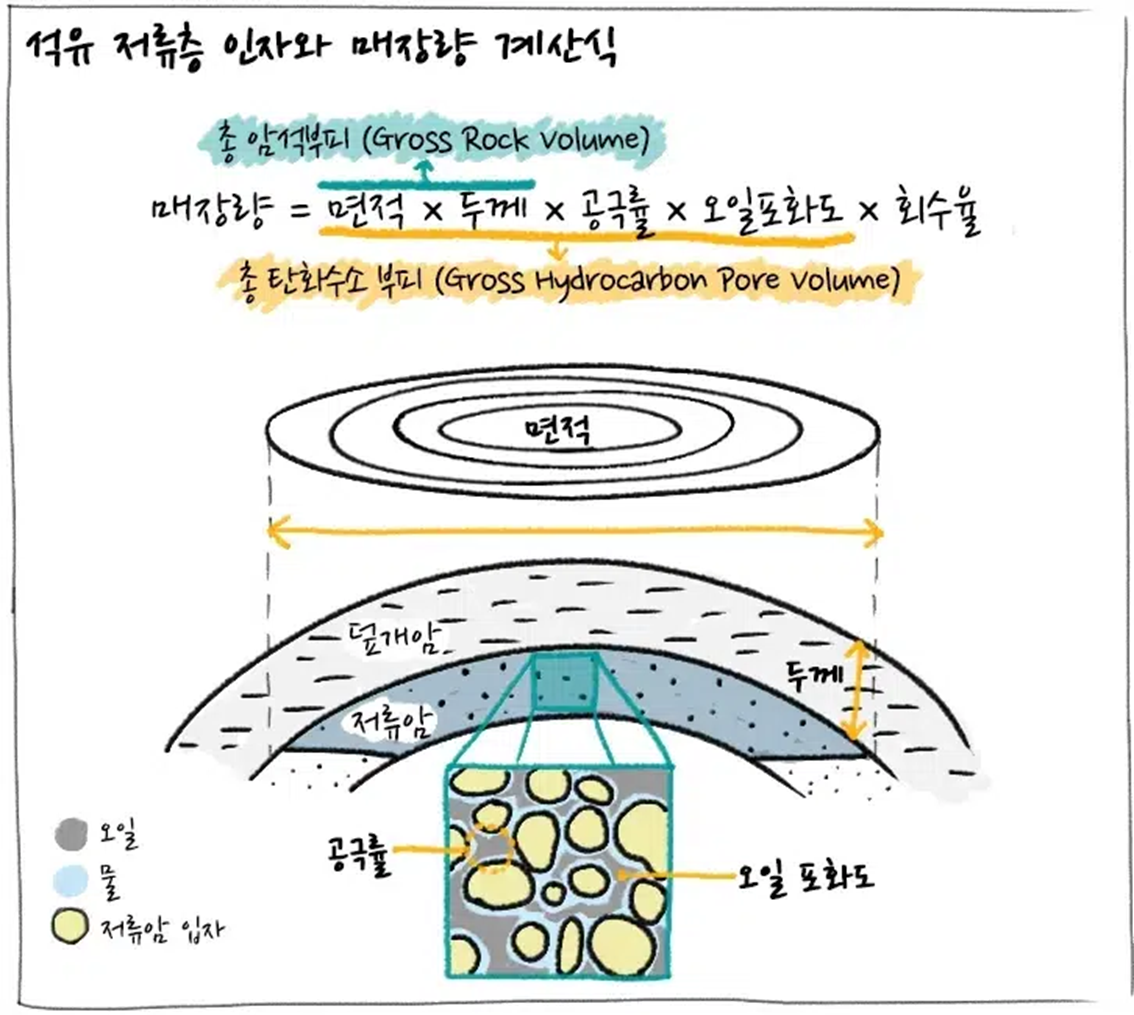 석유 저류층 인자와 매장량 계산식
총 암석부피 (Gross Rock Volume)
매장량 = 면적 × 두께 × 공극률 × 오일포화도 × 회수율
총 탄화수소 부피 (Gross Hydrocarbon Pore Volume)
면적
덮개암
두께
저류암
오일
물
저류암 입자
공극률
오일 포화도